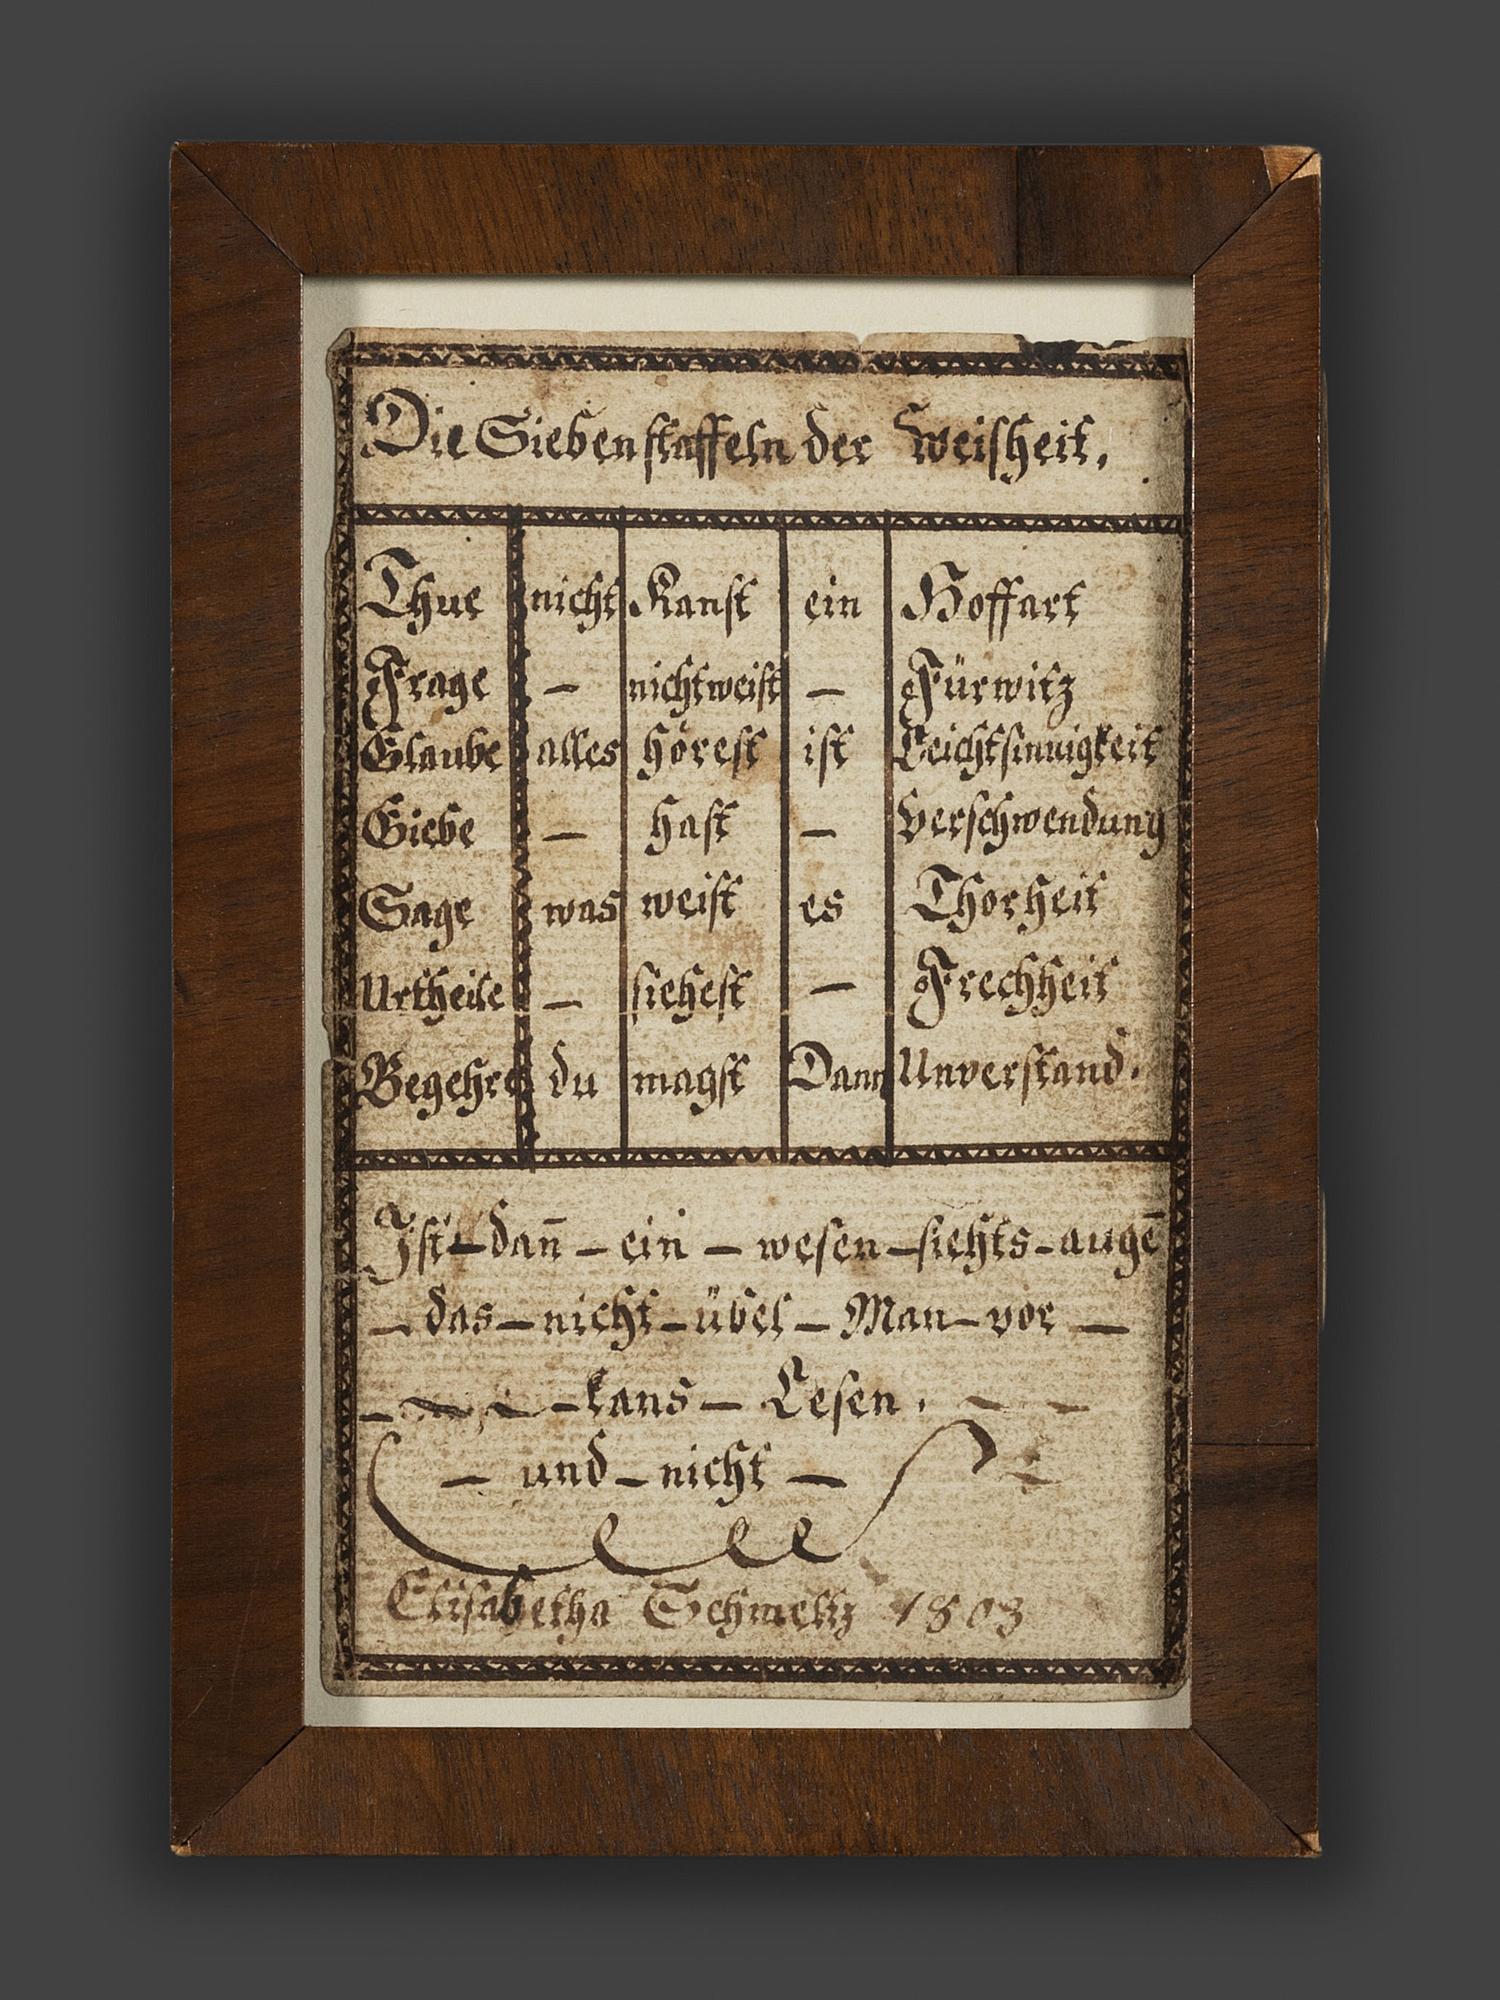 Die Sieben staffeln der Weisheit,
Thue nicht Kanst ein Hoffart
Frage – nicht weist – Fürwitz
Glaube alles hörest ist Leichtsinnigkeit
Giebe – hast – Verschwendung
Sage was weist es Thorheit
Urtheile – siehest – Frechheit
Begehre du magst Dann Unverstand.
Ist – dañ – ein – wesen – siehts – augē
– das – nicht – übel – Man – vor –
– kans – Lesen.
– und – nicht –
Elisabetha Schmeltz 1803